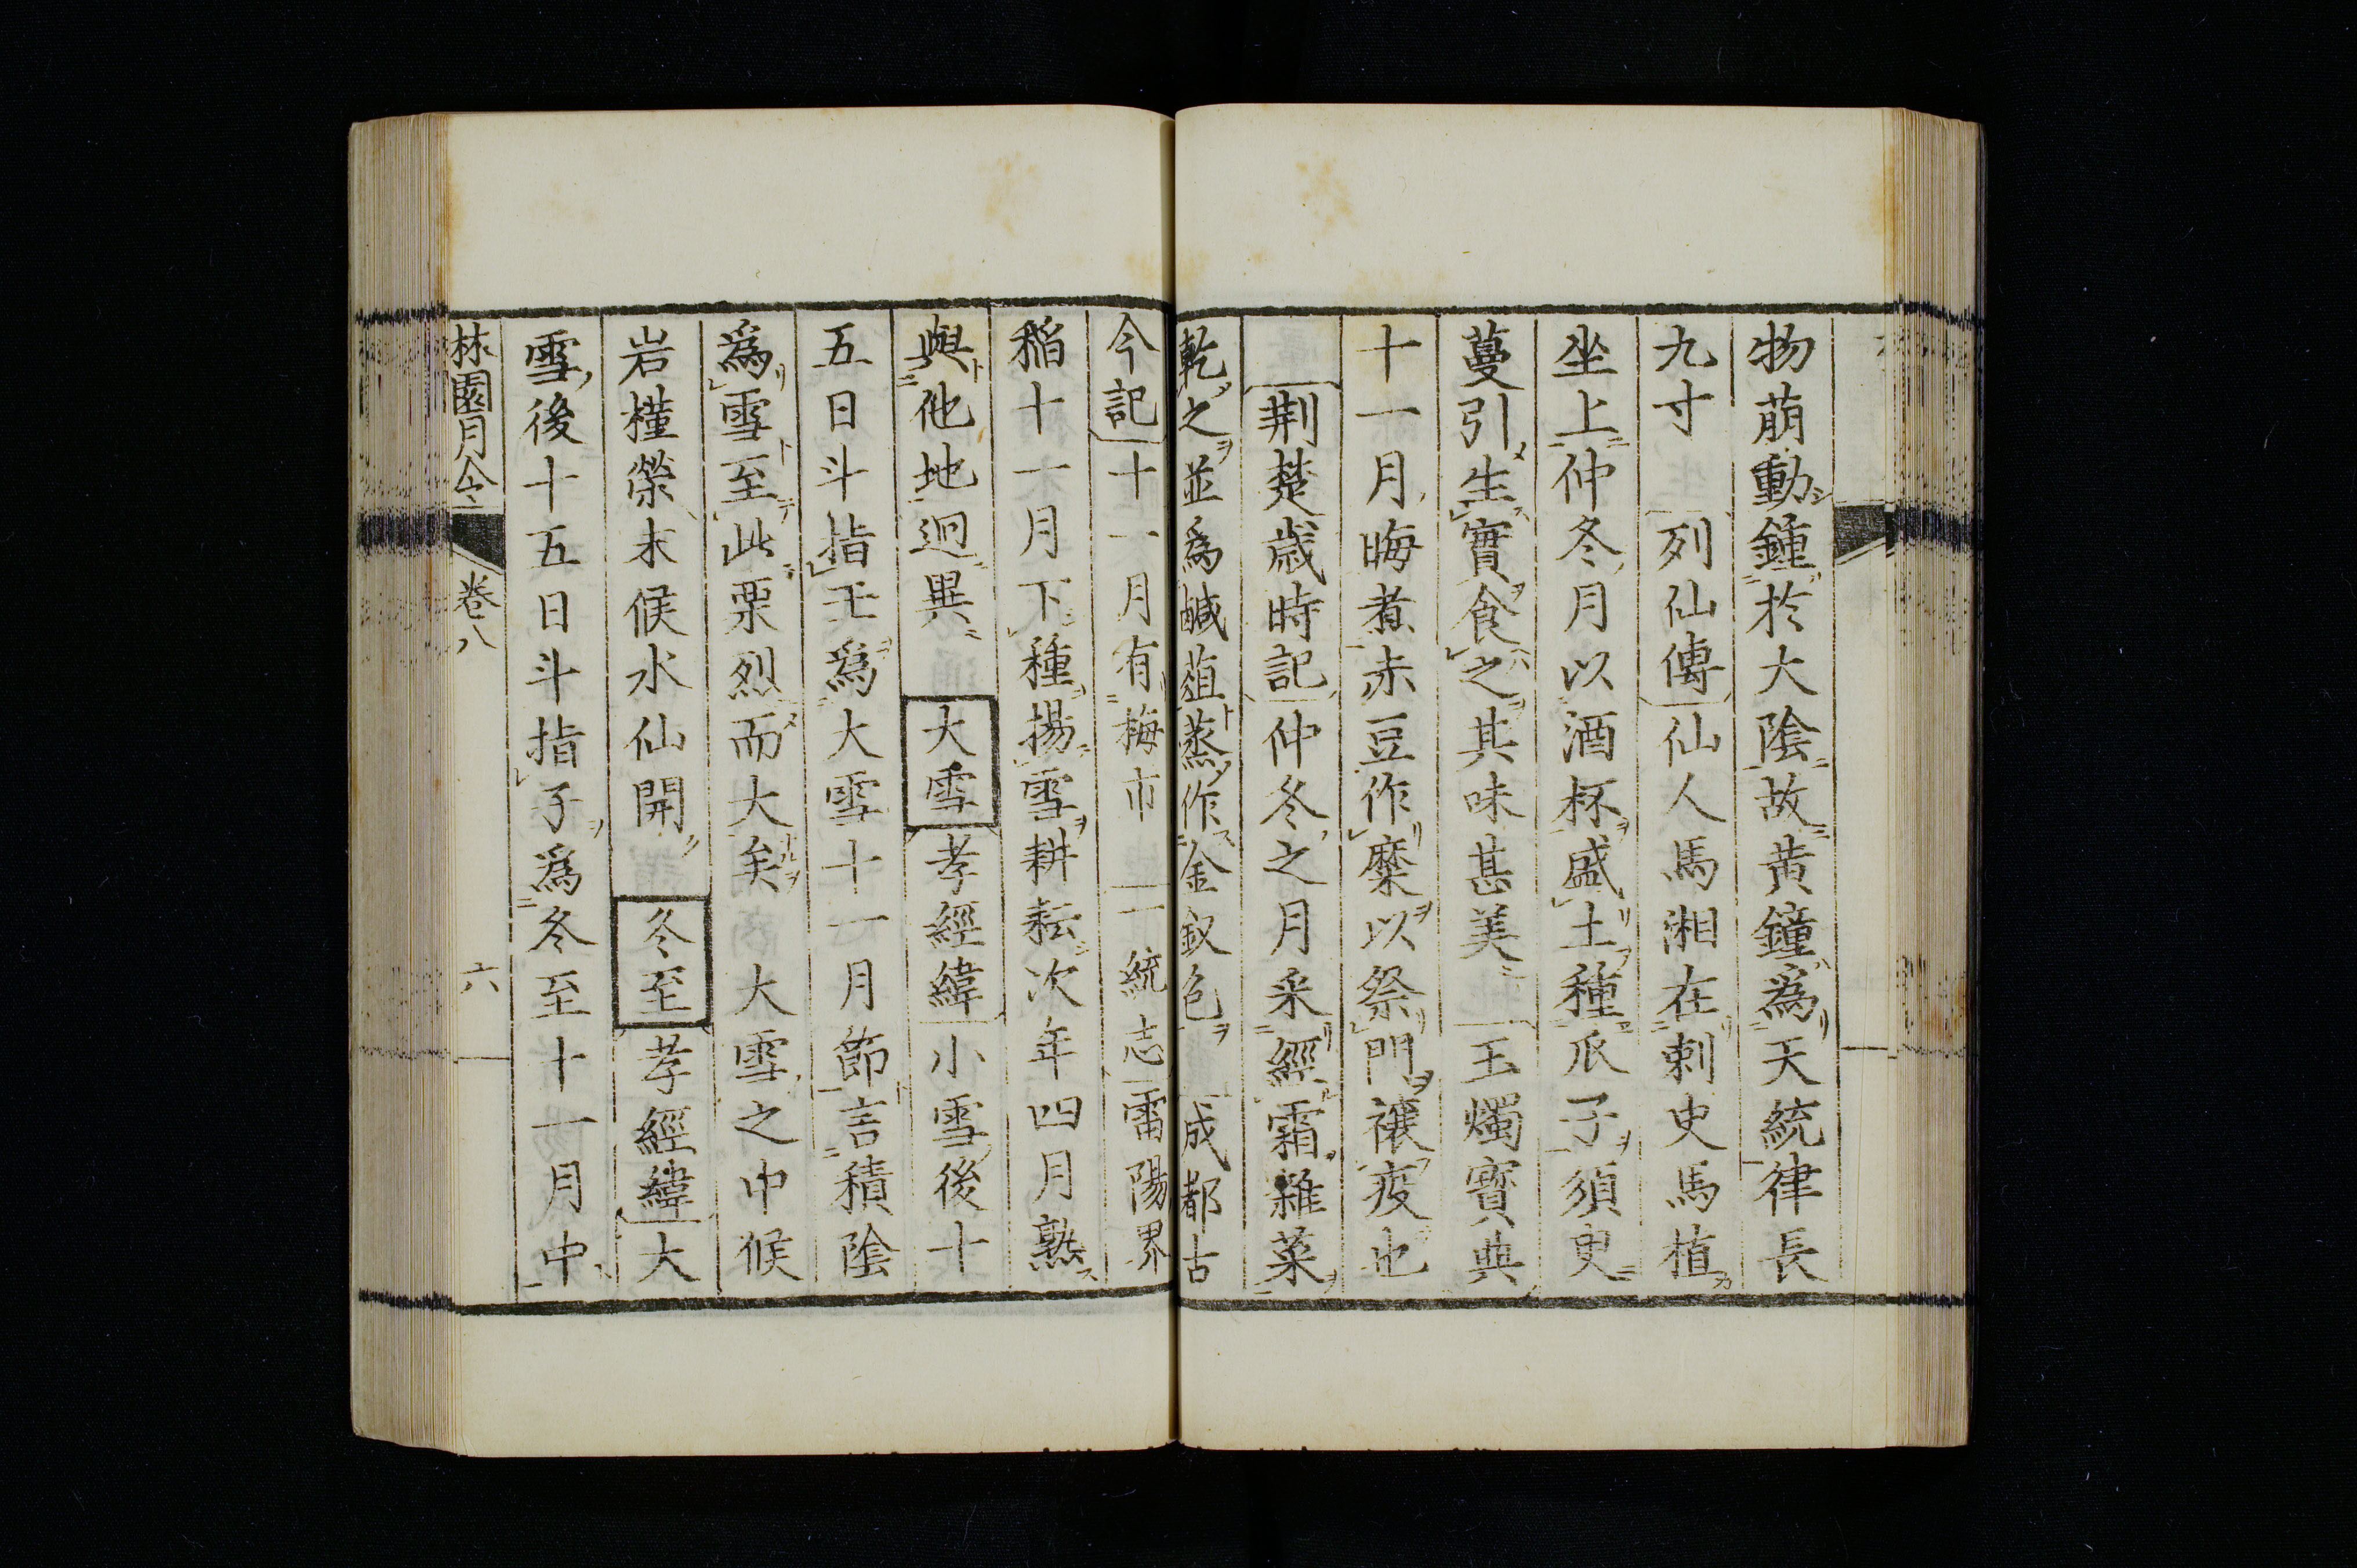 物萠動鍾於大陰故黄鐘爲天統律長
九寸　列仙傳仙人馬湘在刺史馬植
坐上仲冬月以酒杯盛土種瓜子須臾
蔓引生實食之其味甚美　玉燭寳典
十一月晦煮赤豆作糜以祭門禳疫也
荆楚歳時記仲冬之月采經霜雜菜
乾之並爲鹹葅蒸作金釵色　成都古
今記十一月有梅市　一統志雷陽界
稲十一月下種揚雪耕耘次年四月熟
與他地迥異　大雪孝經緯小雪後十
五日斗指壬爲大雪十一月節言積陰
爲雪至此栗烈而大矣　大雪之中候
岩槿榮木候水仙開　冬至孝經緯大
雪後十五日斗指子爲冬至十一月中
林園月令　卷八　六